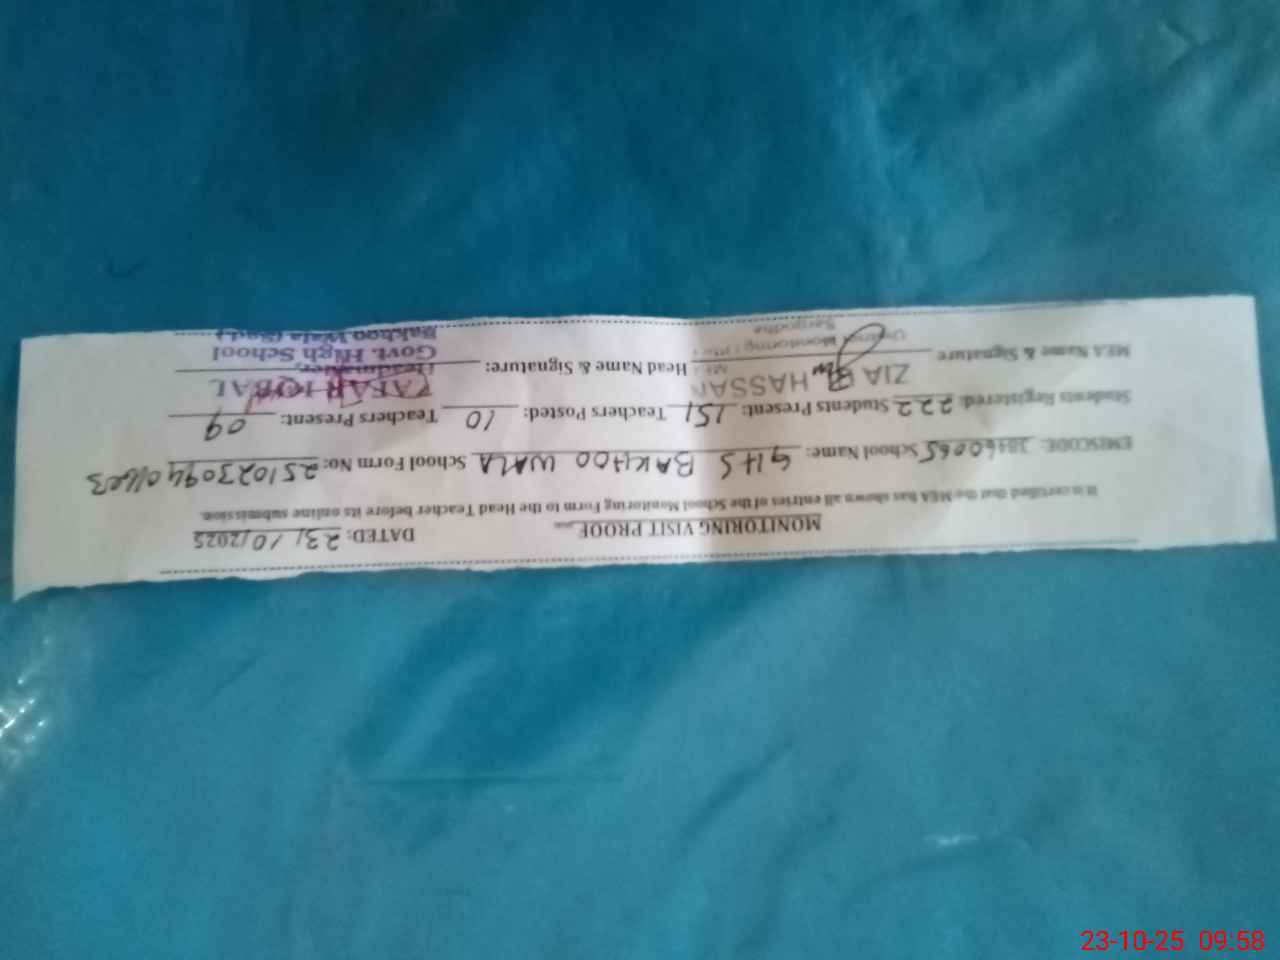 MONITORING VISIT PROOF DATED: 23/10/2025
It is certified that the MEA has shown all entries of the School Monitoring Form to the Head Teacher before its online submission.
EMISCODE: 38460065 School Name: GHS BAKHOO WALA School Form No: 251023094
Students Registered: 222 Students Present: 151 Teachers Posted: 10 Teachers Present: 09
MEA Name & Signature ZIA HASSAN Head Name & Signature: ZAFAR IQBAL
Headmaster,
Monitoring Govt. High School
Sargodha Bakhoo Wala (Sgd.)
23-10-25 09:58